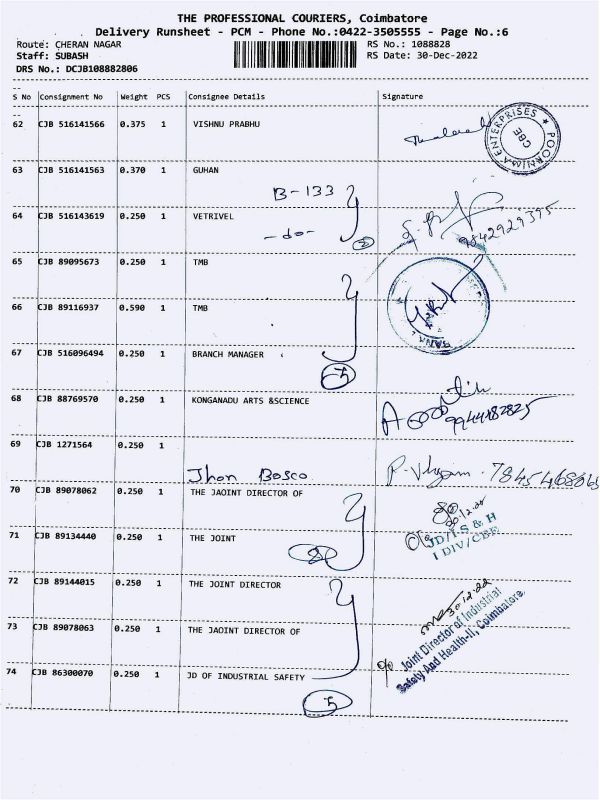 THE PROFESSIONAL COURIERS, Coimbatore
Delivery Runsheet - PCM - Phone No.:0422-3505555 - Page No.:6
Route: CHERAN NAGAR RS No.: 1088828
Staff: SUBASH RS Date: 30-Dec-2022
DRS No.: DCJB108882806
S No Consignment No Weight PCS Consignee Details Signature
62 CJB 516141566 0.375 1 VISHNU PRABHU
POORNIMA ENTERPRISES CBE
63 CJB 516141563 0.370 1 GUHAN
B-133
64 CJB 516143619 0.250 1 VETRIVEL
-do- 2 9842929395
65 CJB 89095673 0.250 1 TMB
66 CJB 89116937 0.590 1 TMB
67 CJB 516096494 0.250 1 BRANCH MANAGER
68 CJB 88769570 0.250 1 KONGANADU ARTS &SCIENCE
9944482825
69 CJB 1271564 0.250 1
Jhon Bosco
70 CJB 89078062 0.250 1 THE JAOINT DIRECTOR OF
71 CJB 89134440 0.250 1 THE JOINT
JD/I.S & H
I DIV/CBE
72 CJB 89144015 0.250 1 THE JOINT DIRECTOR
30.12.22
73 CJB 89078063 0.250 1 THE JAOINT DIRECTOR OF
Joint Director of Industrial
Safety And Health-II, Coimbatore
74 CJB 86300070 0.250 1 JD OF INDUSTRIAL SAFETY